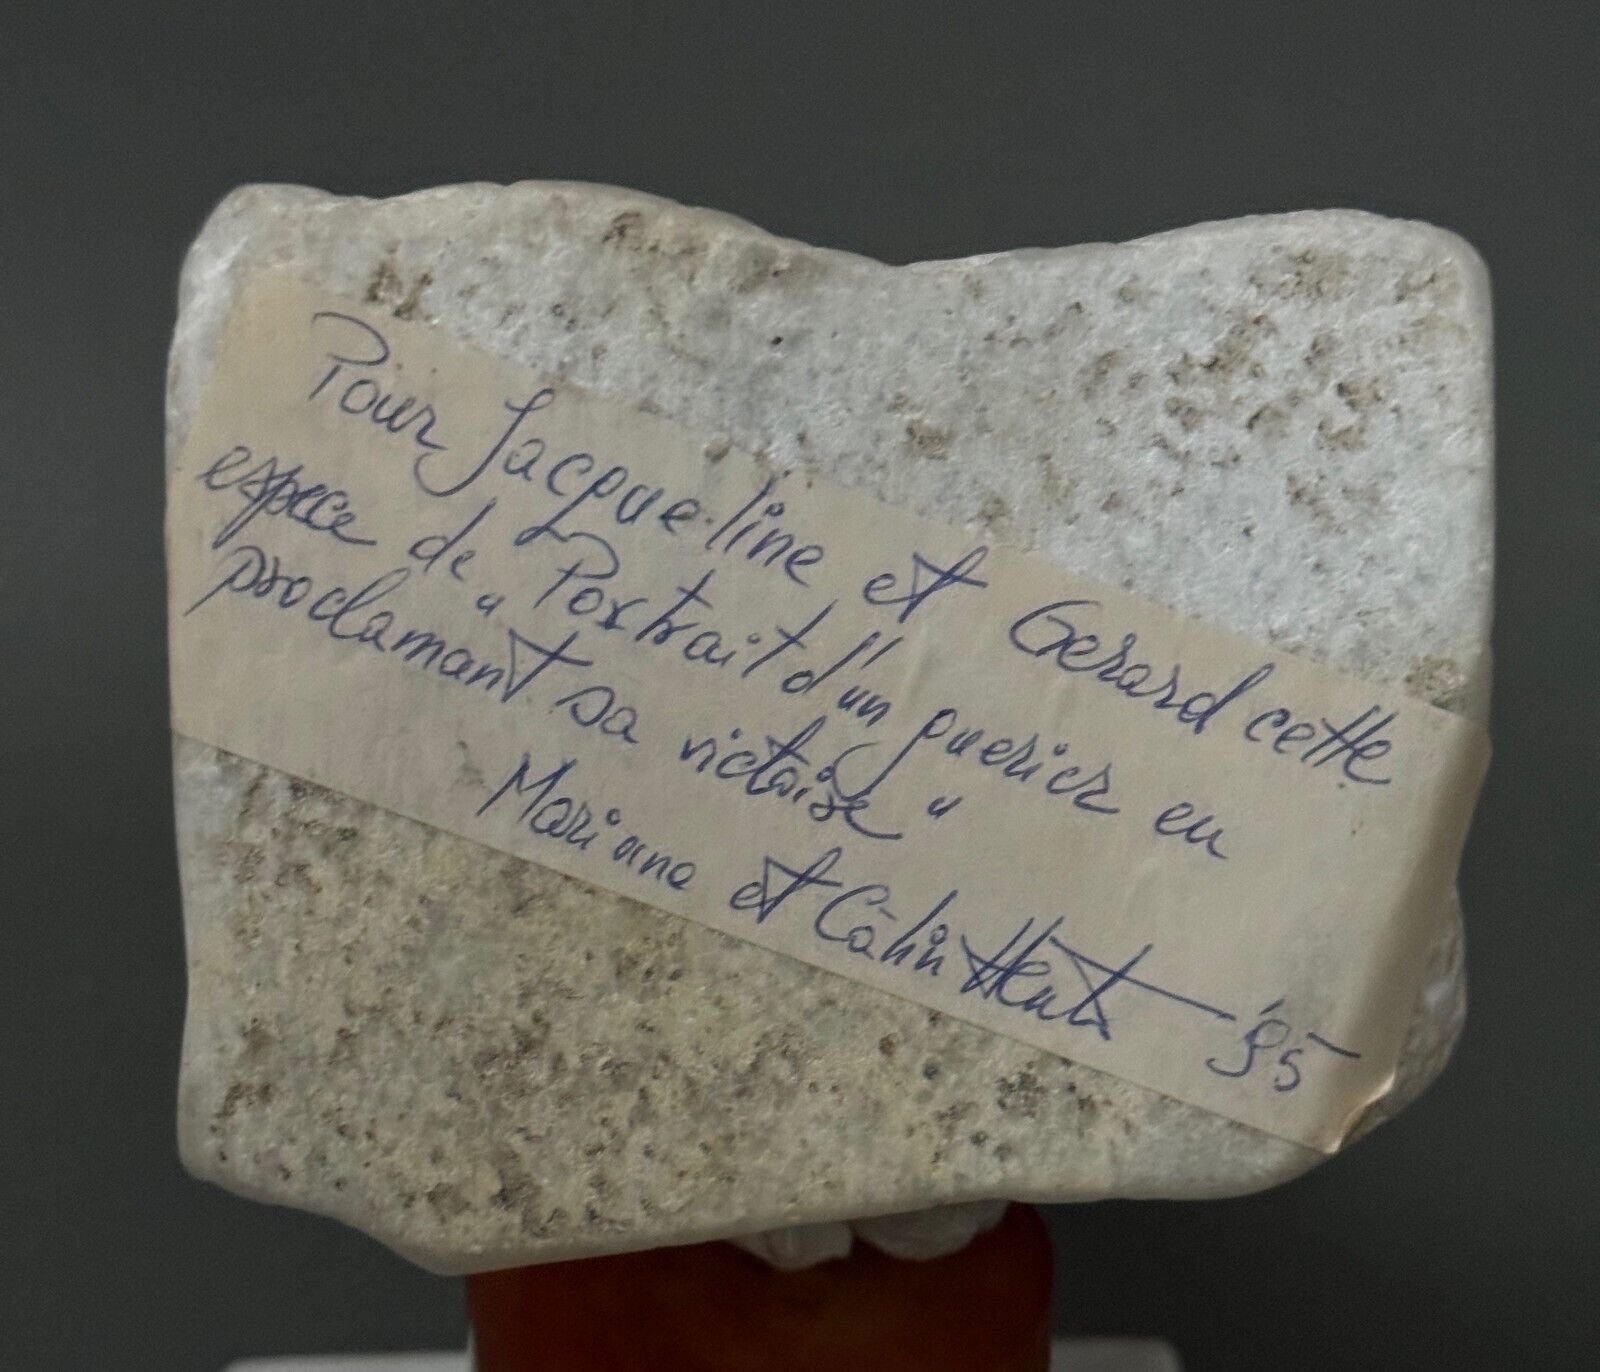 Pour Jacqueline et Gerard cette
espece de "Portrait d'un guerier en
proclamant sa victoire"
Mariana et Călin Hent '95